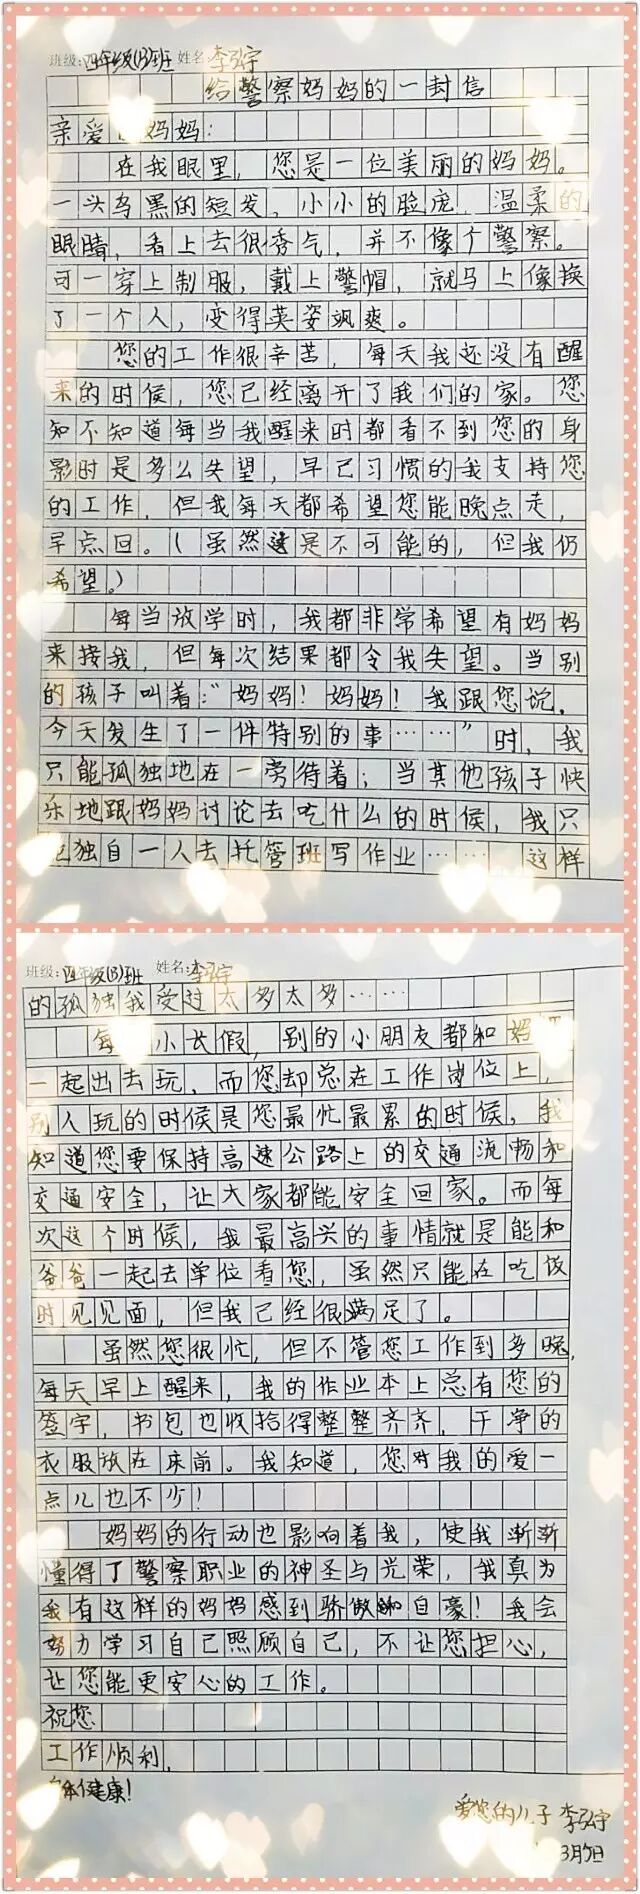 班级:四年级(13)班 姓名:李弘宇
给警察妈妈的一封信
亲爱 妈妈:
在我眼里，您是一位美丽的妈妈。
一头乌黑的短发，小小的脸庞，温柔的
眼睛，看上去很秀气，并不像个警察。
可一穿上制服，戴上警帽，就马上像换
了一个人，变得英姿飒爽。
您的工作很辛苦，每天我还没有醒
来的时候，您已经离开了我们的家。您
知不知道每当我醒来时都看不到您的身
影时是多么失望，早已习惯的我支持您
的工作，但我每天都希望您能晚点走，
早点回。(虽然这是不可能的，但我仍
希望。)
每当放学时，我都非常希望有妈妈
来接我，但每次结果都令我失望。当别
的孩子叫着:“妈妈!妈妈!我跟您说，
今天发生了一件特别的事……”时，我
只能孤独地在一旁待着;当其他孩子快
乐地跟妈妈讨论去吃什么的时候，我只
独自一人去托管班写作业……这样
班级:四年级(13)班 姓名:李弘宇
的孤独我受过太多太多……
每 小长假，别的小朋友都和妈
一起出去玩，而您却总在工作岗位上，
别人玩的时候是您最忙最累的时候，我
知道您要保持高速公路上的交通流畅和
交通安全，让大家都能安全回家。而每
次这个时候，我最高兴的事情就是能和
爸爸一起去单位看您，虽然只能在吃饭
时见见面，但我已经很满足了。
虽然您很忙，但不管您工作到多晚，
每天早上醒来，我的作业本上总有您的
签字，书包也收拾得整整齐齐，干净的
衣服放在床前。我知道，您对我的爱一
点儿也不少!
妈妈的行动也影响着我，使我渐渐
懂得了警察职业的神圣与光荣，我真为
我有这样的妈妈感到骄傲和自豪!我会
努力学习自己照顾自己，不让您担心，
让您能更安心的工作。
祝您
工作顺利，
体健康!
爱您的儿子 李弘宇
3月 日